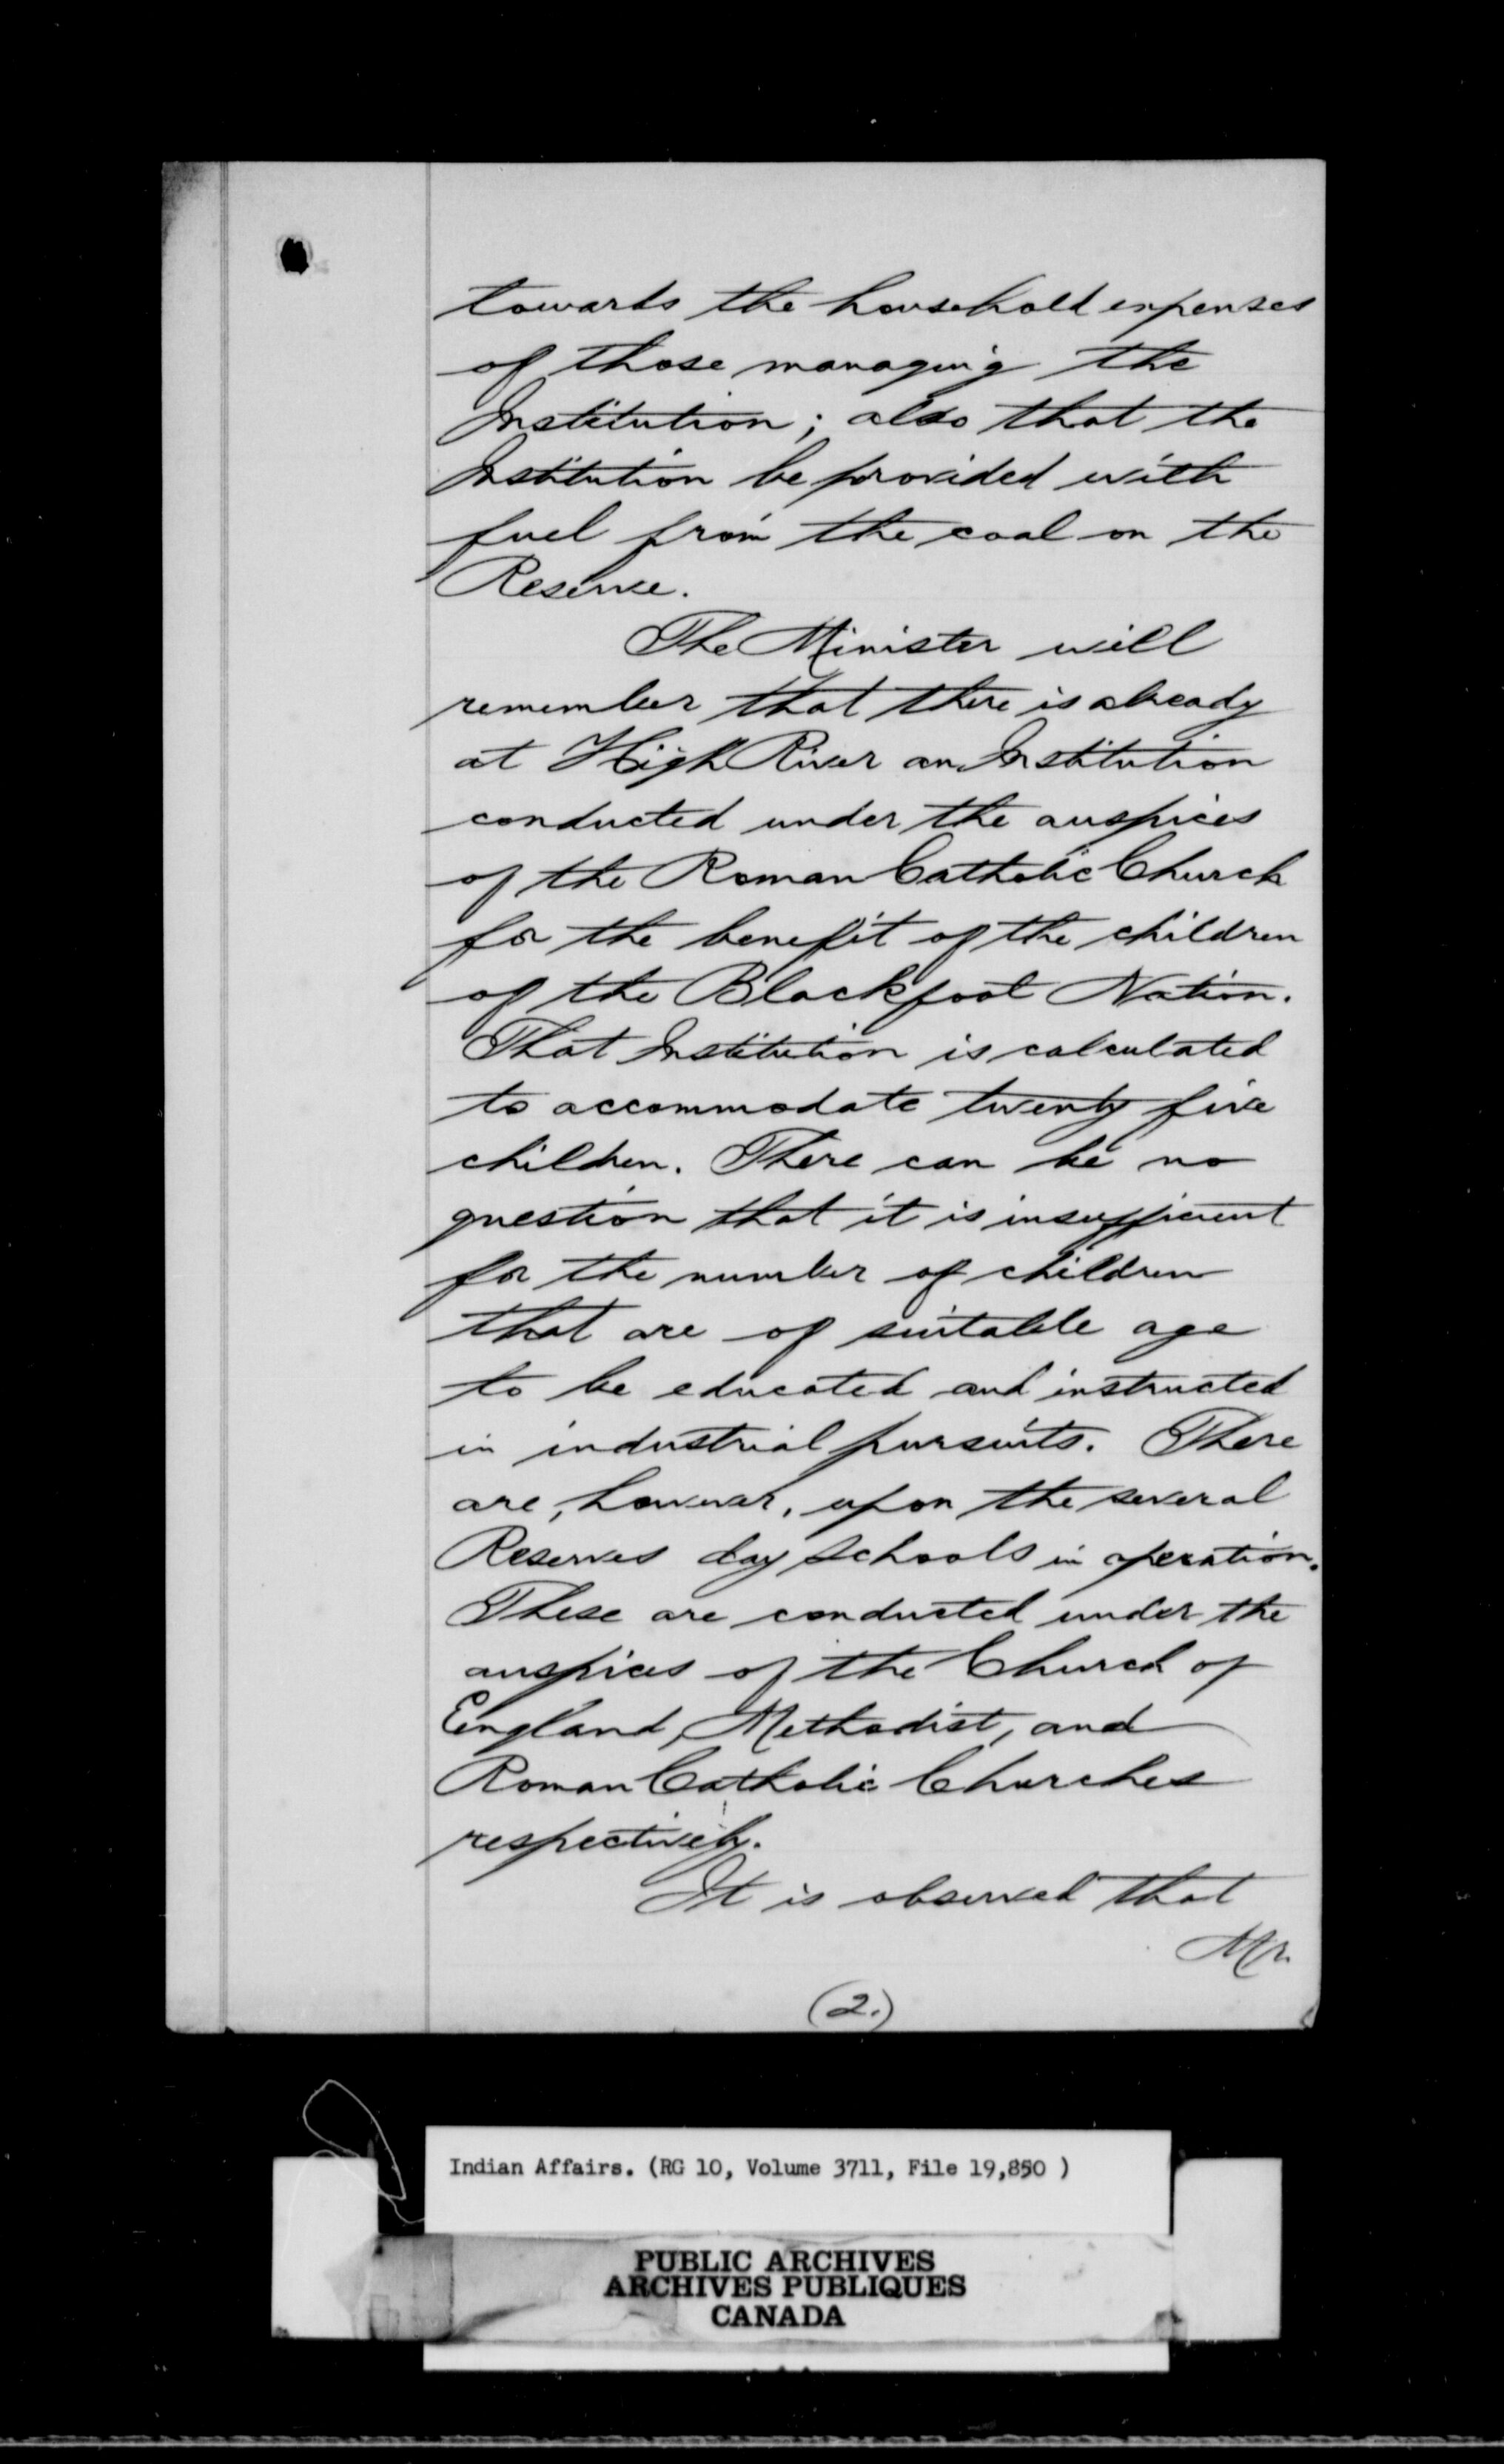 towards the household expenses
of those managing the
Institution; also that the
Institution be provided with
fuel from the coal on the
Reserve.
The Minister will
remember that there is already
at High River an Institution
conducted under the auspices
of the Roman Catholic Church
for the benefit of the children
of the Blackfoot Nation.
That Institution is calculated
to accommodate twenty five
children. There can be no
question that it is insufficient
for the number of children
that are of suitable age
to be educated and instructed
in industrial pursuits. There
are, however, upon the several
Reserves day schools in operation.
These are conducted under the
auspices of the Church of
England, Methodist, and
Roman Catholic Churches
respectively.
It is observed that
Mr.
(2.)
Indian Affairs. (RG 10, Volume 3711, File 19,850 )
PUBLIC ARCHIVES
ARCHIVES PUBLIQUES
CANADA